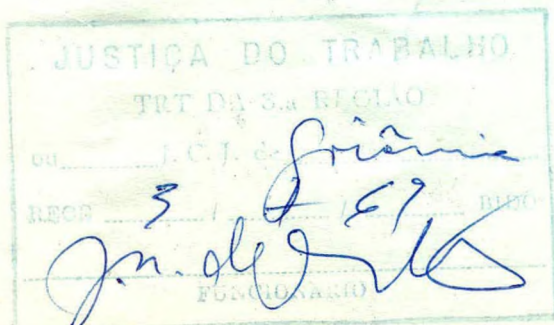 JUSTIÇA DO TRABALHO
TRT DA 3.a REGIÃO
ou J. C. J. de Goiânia
RECE 3 / / 69 BIDO
FUNCIONARIO